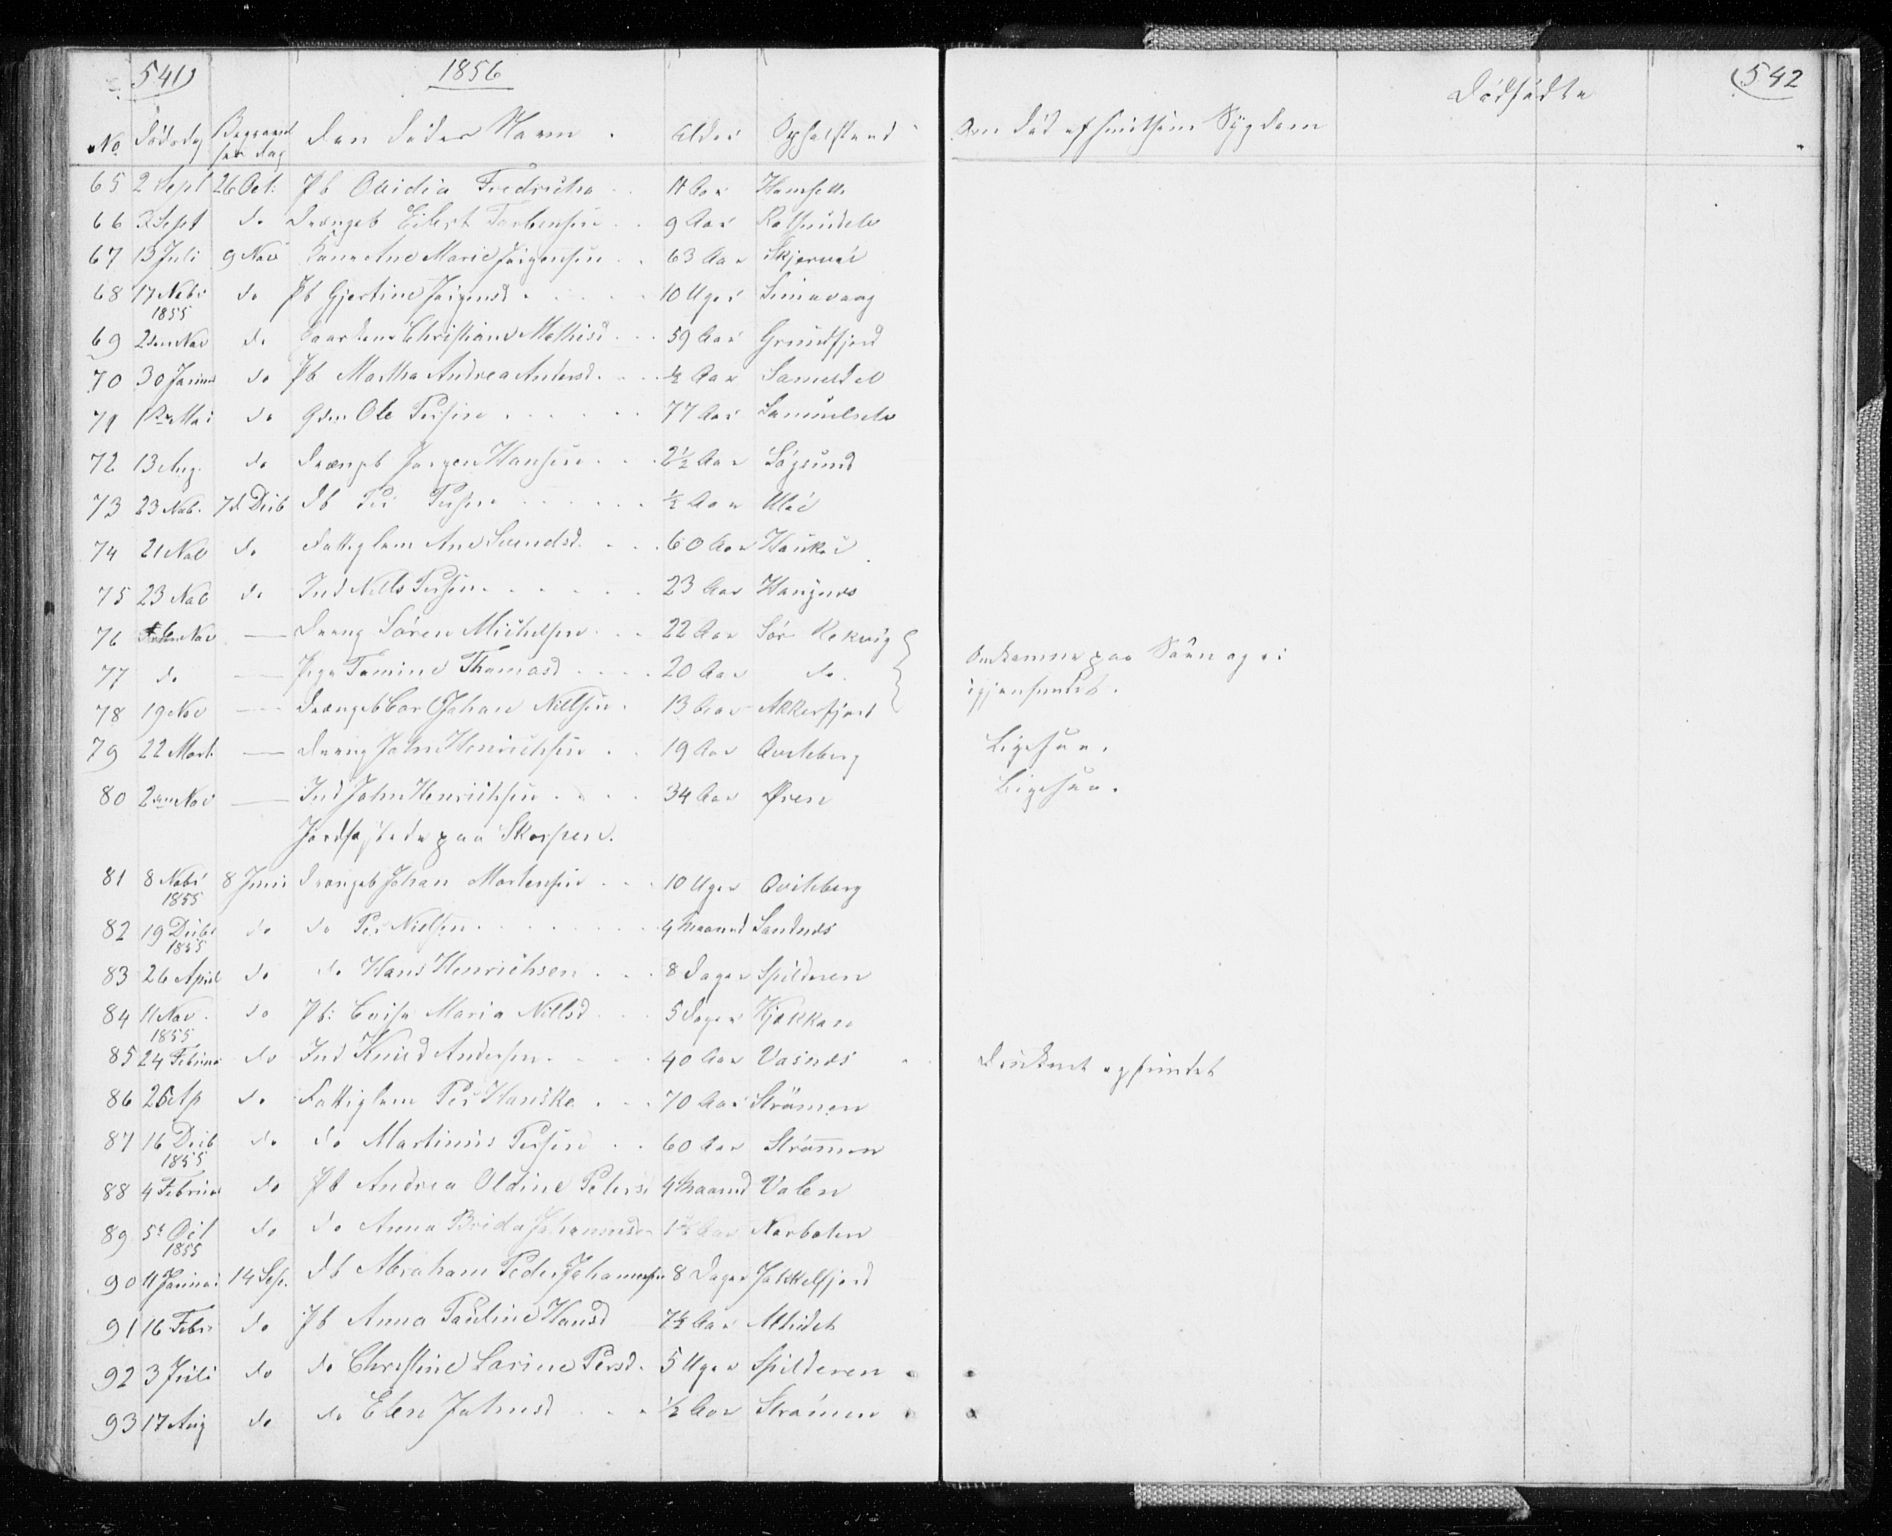 541) 1856
No Dødsdag Begravelses dag Den Dødes Navn Alder Opholdssted
65 2 Sept 26 Oct: Pb Ovidia Fredricka 11 Aar Hamfelt
66 3 Sept do Drængeb Eilert Torbensen 9 Aar Rotsundelv
67 13 Juli 9 Nov Kone Ane Marie Jørgensen 63 Aar Skjervøe
68 17 Nobr 1855 do Pb Gjertine Jørgensd 10 Uger
69 2den Nov do Christiane Mathisd 59 Aar Grundfjord
70 30 Januar do Pb Martha Andrea Andersd ½ Aar
71 1ste Mai do Gdm Ole Persen 77 Aar Samuelselv
72 13 Aug. do Drængeb Jørgen Hansen 2½ Aar Løgsund
73 23 Nob. 7d Decb Db Per Persen ½ Aar Uløe
74 21 Nov do Fattiglem Ane Svendsd 60 Aar Haukøe
75 23 Nov do Ind Nills Persen 23 Aar Hangnes
76 Nov — Dreng Søren Michelsen 22 Aar Sør Rekvig
77 do — Pige Tomine Thomasd 20 Aar do
78 19 Nov — Drængeb Johan Nillsen 13 Aar Akkerfjord
79 22 Mart — Dreng John Henrichsen 19 Aar Qviteberg
80 2den Nov — Ind John Henrichsen 34 Aar Øren
Jordfæstede paa Skorpen.
81 8 Nobr 1855 8 Juni Drængeb Johan Mortensen 10 Uger Qviteberg
82 19 Decbr 1855 do do Per Nielsen 4 Maaned Sandnes
83 26 April do do Hans Henrichsen 8 Dager Spilderen
84 11 Nov 1855 do Pb: Lovise Maria Nillsd 5 Dager Kjækkan
85 24 Februar do Ind Knud Andersen 40 Aar Vasnes
86 26 Ap do Fattiglem Per Hanska 70 Aar Strømen
87 16 Decb 1855 do do Martinus Persen 60 Aar Strømmen
88 4 Februar do Pb Andrea Oldine Peters 4 Maaned Valen
89 5t Oct 1855 do do Anna Brida Johannesd 1½ Aar Norboten
90 11 Januar 14 Sep. Db Abraham Peder Johannesen 8 Dager Jøkkelfjord
91 16 Febr do Pb Anna Pauline Hansd 7½ Aar Altidet
92 3 Juli do do Christine Larine Persd 5 Uger Spilderen
93 17 Aug do do Elen Johnsd ½ Aar Strømen
(542
Om død af smitsom Sygdom Dødfødte
Omkomne paa Søen og ei
igjenfundet.
Ligesaa.
Ligesaa.
Druknet opfundet